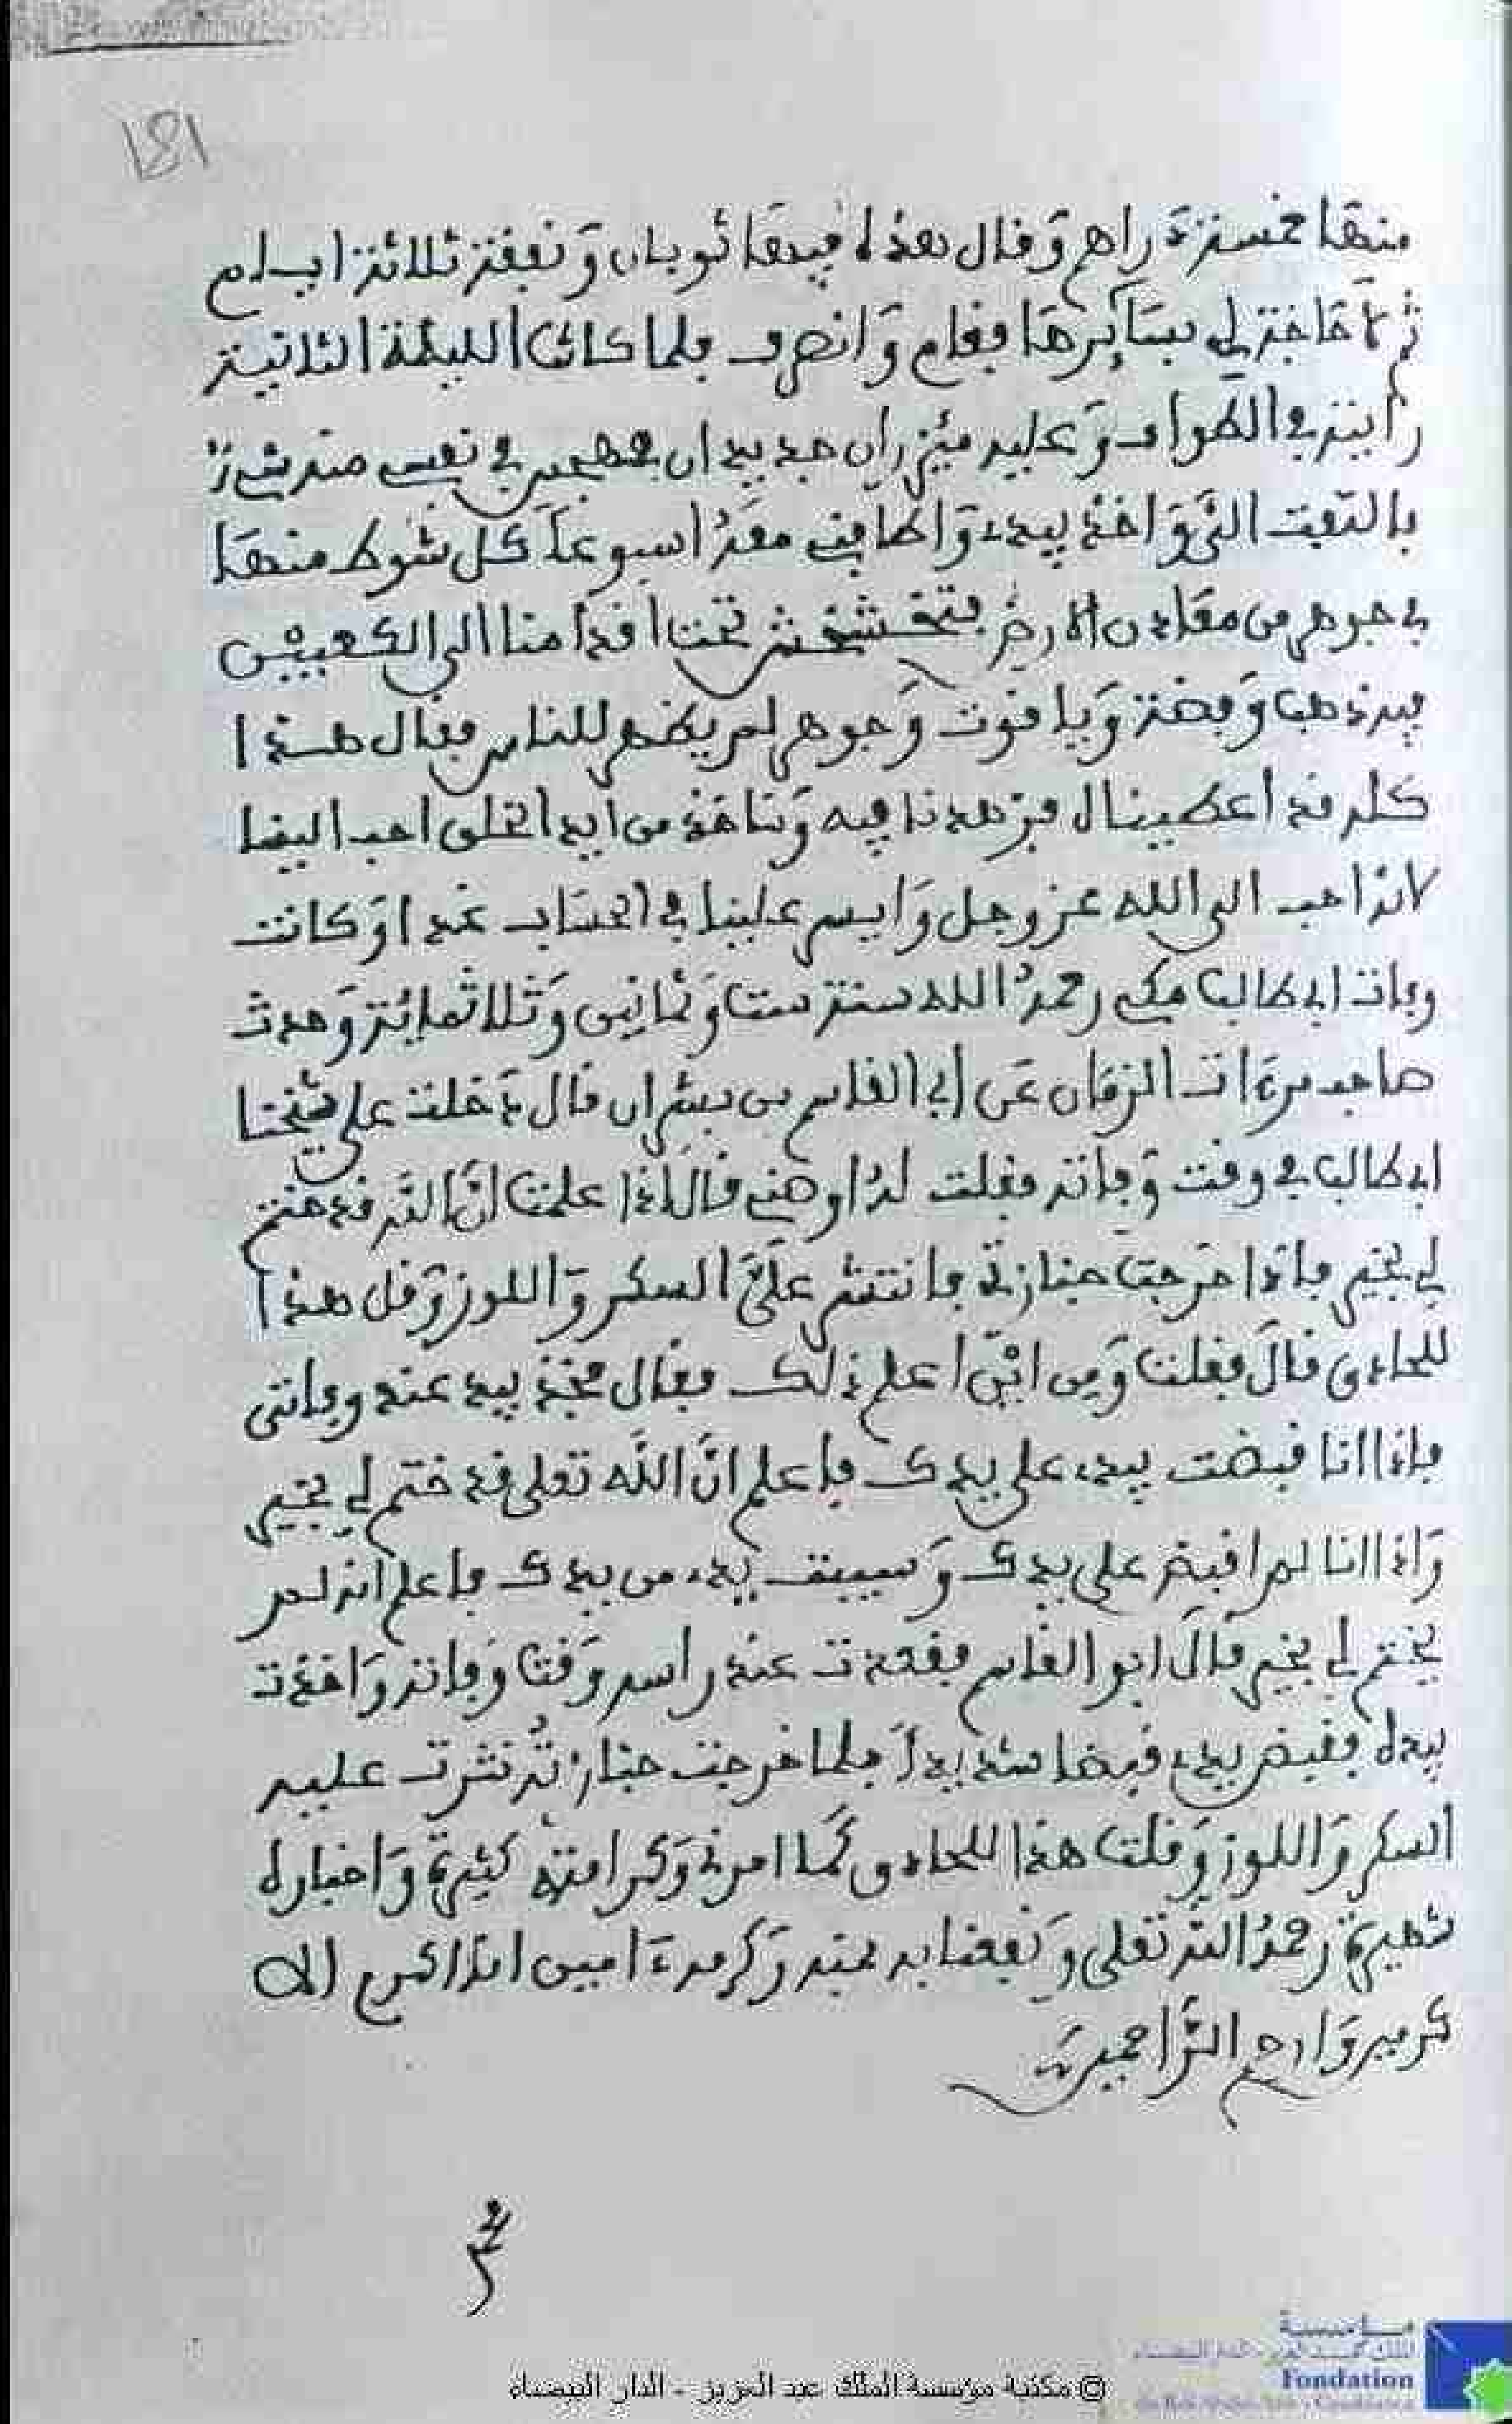 181
منها خمسة دراهم وقال هذه فيها ثوبان ونفقة ثلاثة ايام
ثم لا حاجة لي بسايرها فقام وانصرف فلما كان الليلة الثانية
رايته في الطواف وعليه مئزران جديدان فهجس في نفسي منه شيء
فالتفت الي واخذ بيدي واطافني معه اسبوعا كل شوط منها
في جوهر من معادن الارض يتخشخش تحت اقدامنا الى الكعبين
فيه ذهب وفضة وياقوت وجوهر لم يظهر للناس فقال هذا
كله قد اعطيناه فزهدنا فيه وناخذ من ايد الخلق احب الينا
لانه احب الى الله عز وجل وايسر علينا في الحساب غدا وكانت
وفات ابي طالب مكي رحمه الله سنة ست وثمانين وثلاثمائة وحدث
صاحب مرءات الزمان عن ابي القاسم بن بشران قال دخلت على شيخنا
ابي طالب في وقت وفاته فقلت له اوصني قال اذا علمت ان الله قد ختم
لي بخير فاذا خرجت جنازتي فانتثر علي السكر واللوز وقل هذا
للحاذق قال فقلت ومن اين اعلم ذلك فقال فخذ بيدي عند وفاتي
فاذا انا قبضت بيدي على يدك فاعلم ان الله تعلى قد ختم لي بخير
واذا انا لم اقبض على يدك وسيبت يدي من يدك فاعلم انه لم
يختم لي بخير قال ابو القاسم فقعدت عند راسه وقت وفاته واخذت
بيده فقبض يدي قبضا شديدا فلما خرجت جنازته نثرت عليه
السكر واللوز وقلت هذا للحاذق كما امرني وكراماته كثيرة واخباره
شهيرة رحمه الله تعلى ونفعنا به بمنه وكرمه ءامين انه اكرم الا
كرمين وارحم الراحمين
© مكتبة مؤسسة الملك عبد العزيز - الدار البيضاء
مؤسسة
Fondation